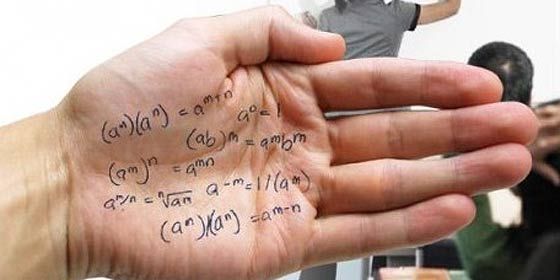 (aⁿ)(aⁿ) = aᵐ⁺ⁿ
a⁰ = 1
(ab)ᵐ = aᵐbᵐ
(aᵐ)ⁿ = aᵐⁿ
aⁿ/ⁿ = ⁿ√aⁿ
a⁻ᵐ = 1/(aᵐ)
(aᵐ)/(aⁿ) = aᵐ⁻ⁿ